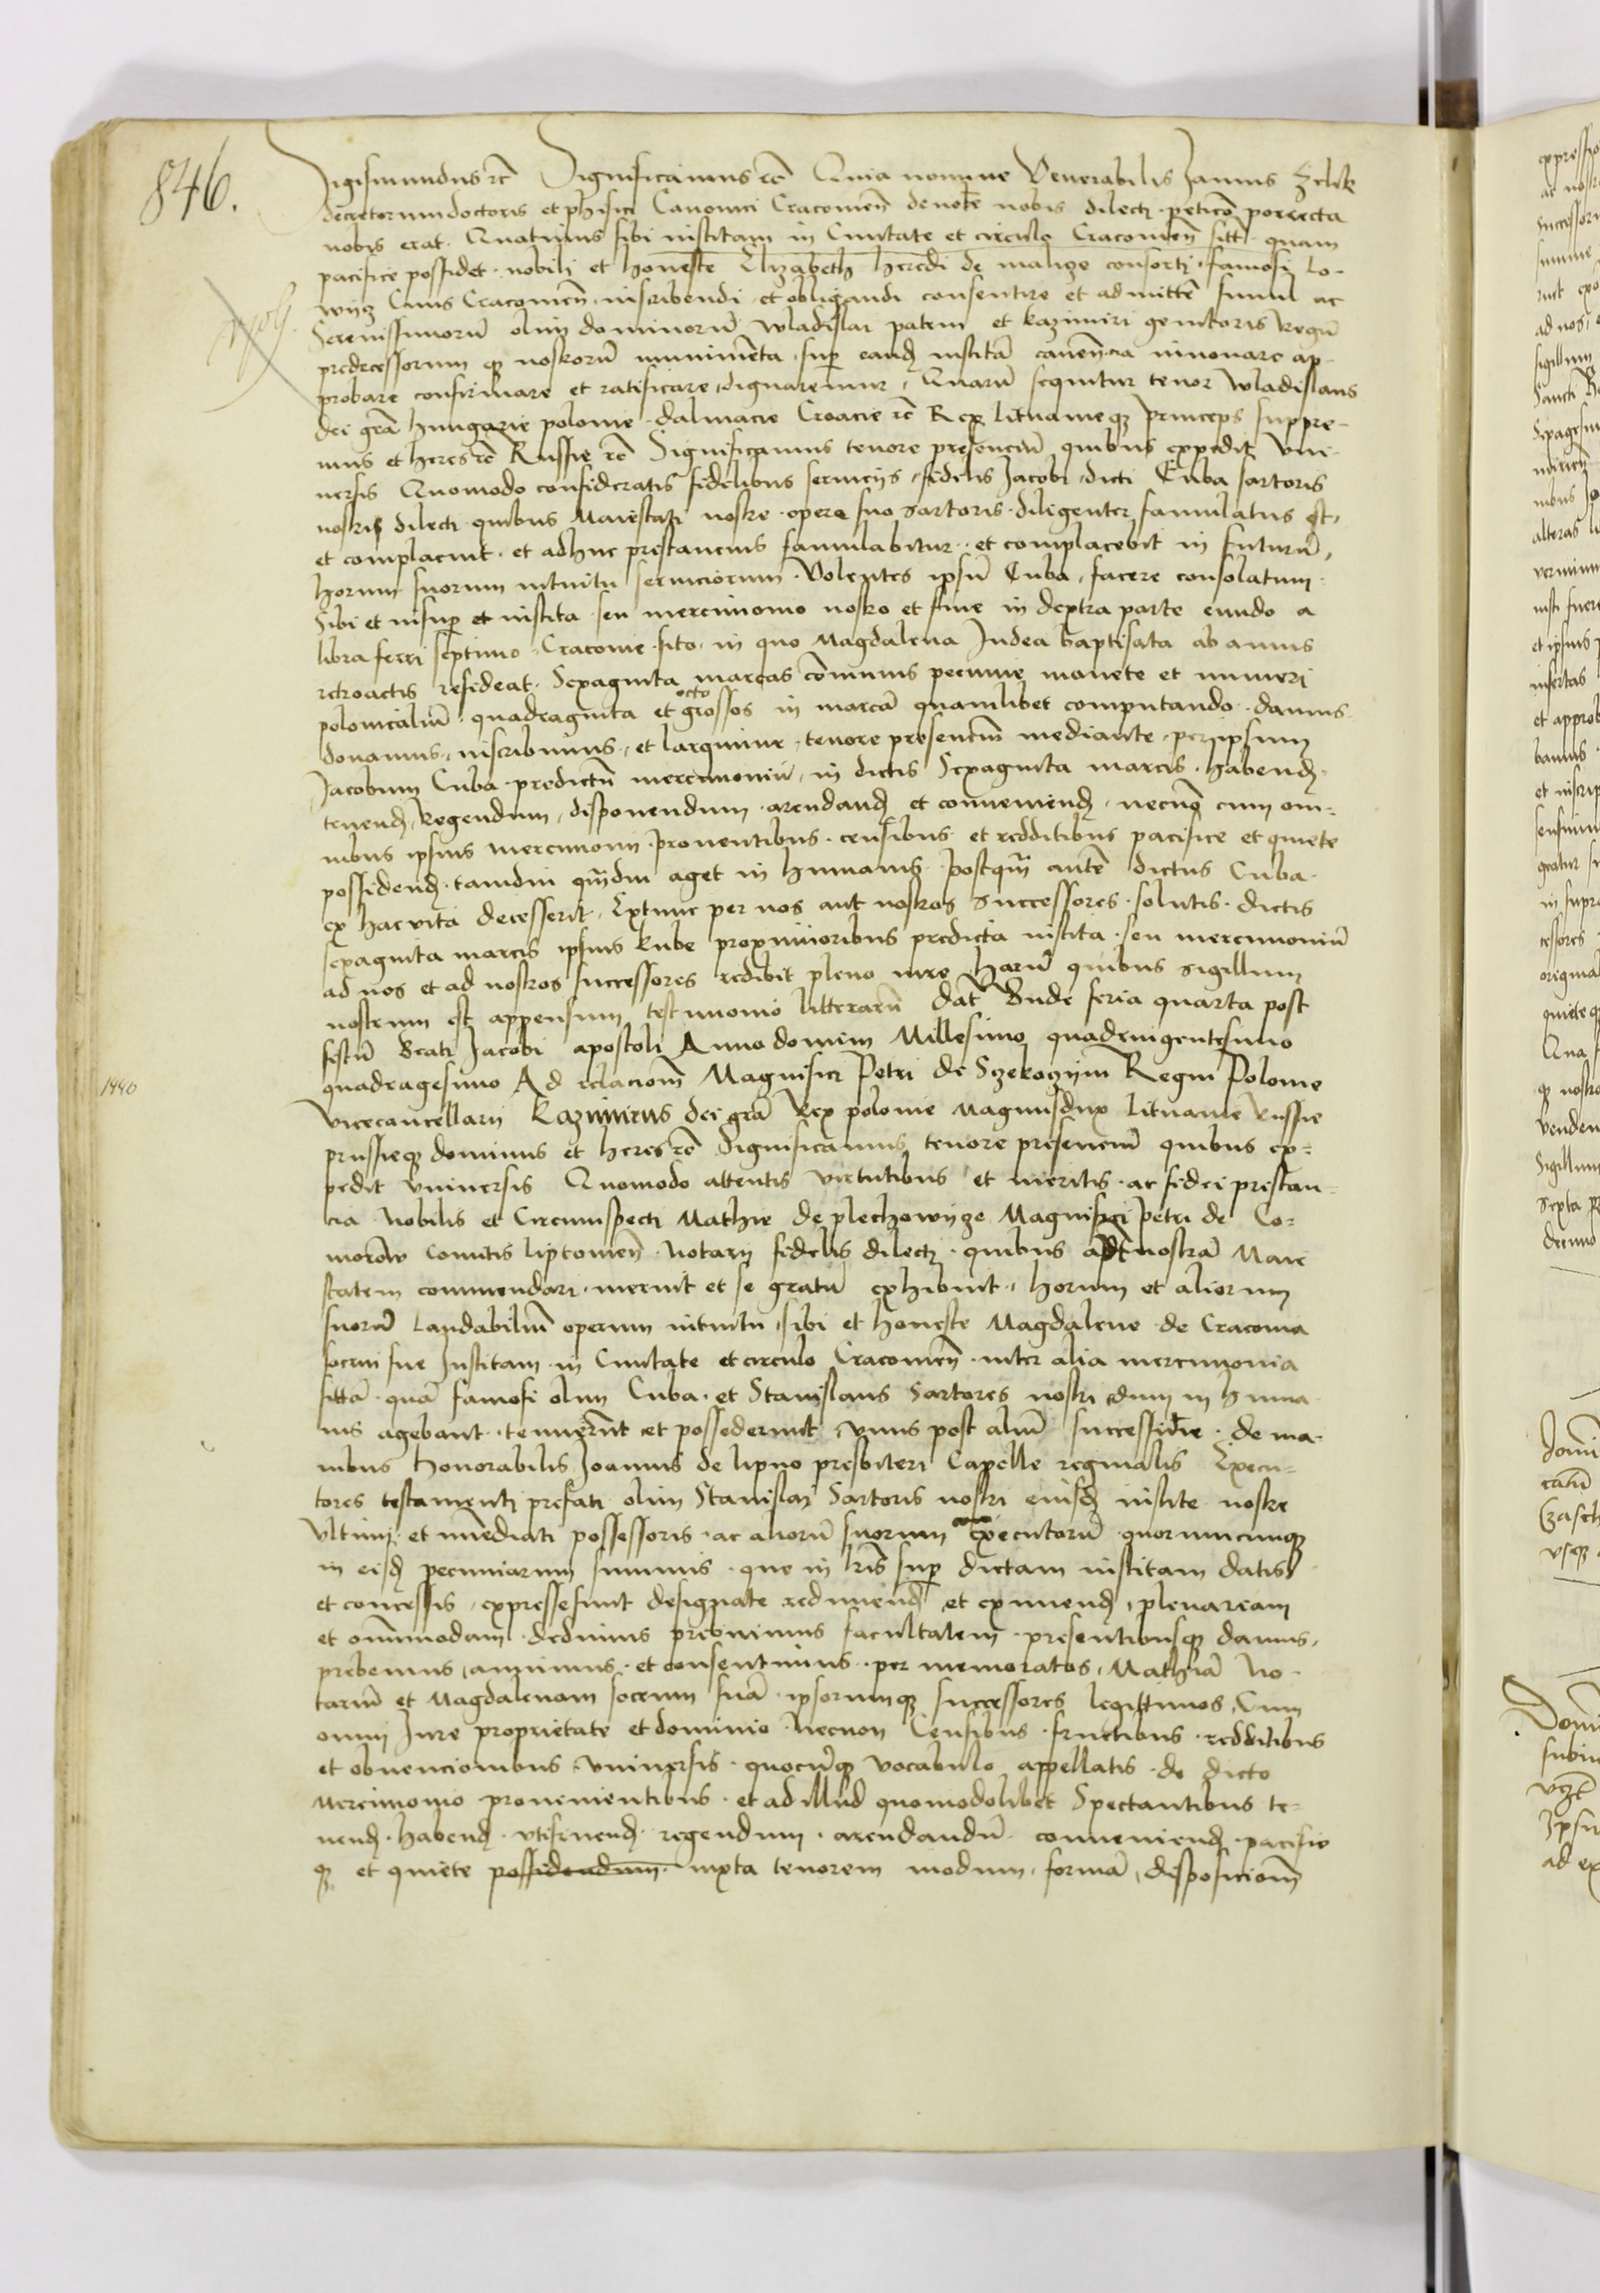 846.
Sigismundus etc Significamus etc Quia nomine Venerabilis Jannis
decretorum doctoris et phisici Canonici Cracouien deuote nobis dilecti peticō porrecta
nobis erat. Quatinus sibi institam in Ciuitate et circulo Cracouien sitt. quam
pacifice possidet nobili et honeste Elizabeth heredi de malize consorti famosi Lo-
wijcz Ciuis Cracouien inscribendi et obligandi consentire et admitte simul ac
Serenissimorū olim dominorū wladislai patrui et kazimiri genitoris Regū
predecessorum qz nostrorū munimēta sup eandz institā cauen̄cia innouare ap-
probare confirmare et ratificare dignaremur, Quarū sequitur tenor wladislaus
dei grā hungarie polonie dalmacie Croacie etc Rex lituanieqz princeps suppre-
mus et heres etc Russie etc Significamus tenore presenciū quibus expedit Vni-
uersis Quomodo consideratis fidelibus seruicijs fidelis Jacobi dicti Cuba sartoris
nostri dilecti quibus Maiestati nostre opera suo sartoris diligenter famulatus est,
et complacuit. et adhuc prestancius famulabitur. et complacebit in futurū,
horum suorum intuitu seruiciorum. Volentes ipsū Cuba, facere consolatum.
Sibi et insup et instita seu mercimonio nostro et siue in dextra parte eundo a
libra ferri septimo. Cracouie sito. in quo Magdalena Judea baptisata ab annis
retroactis resideat. Sexaginta marcas cōmunis pecunie monete et numeri
polonicaliū quadraginta et octo grossos in marcā quamlibet computando. damus
donamus, inscribimus, et largimur, tenore presenciū mediante, per ipsum
Jacobum Cuba predictū mercimoniū, in dictis Sexaginta marcis. habendz.
tenendz, Regendum, disponendum. arendandz et conueniendz, necnō cum om-
nibus ipsius mercimonii prouentibus. censibus et redditibus pacifice et quiete
possidendz. tamdiu qmdiu aget in humanis. postqm autē dictus Cuba.
ex hac vita decesserit, Extunc per nos aut nostros Successores. solutis. dictis
sexaginta marcis ipsius kube proximioribus predicta instita. seu mercimoniū
ad nos et ad nostros successores redibit pleno iure Harū quibus sigillum
nostrum est appensum testimonio litterarū Dat Bude feria quarta post
festū Beati Jacobi apostoli Anno domini Millesimo quadringentesimo
1440
quadragesimo Ad relacionē Magnifici Petri de Szekoczijni Regni Polonie
Vicecancellarij Kazimirus dei grā Rex polonie Magnusdux lituanie Russie
prussieqz dominus et heres etc Significamus tenore presenciū quibus ex-
pedit Vniuersis Quomodo attentis virtutibus et meritis. ac fidei prestan-
cia. Nobilis et Circumspecti Mathie de plechowijze Magnifici petri de Co-
morow Comitis liptouien. Notarij fidelis dilecti. quibus apud nostrā Maie
statem commendari. meruit et se gratū exhibuit, horum et aliorum
suorū Laudabiliū operum intuitu, sibi et honeste Magdalene de Cracouia
socrui sue Institam in Ciuitate et circulo Cracouien. inter alia mercimonia
sittā. quā famosi olim Cuba. et Stanislaus Sartores nostri dum in huma-
nis agebant. tenuerūt et possederunt. vnus post aliū successiue. de ma-
nibus honorabilis Joannis de lipno presbiteri Capelle reginalis Execu-
tores testamenti prefati olim Stanislai Sartoris nostri eiusdz instite nostre
Vltimi. et imediati possessoris. ac aliorū suorum executorū quorumcumqz
in eisdz pecuniarum summis. que in lris sup dictam institam datis
et concessis, expresse sunt designate redimendz et eximendz, plenariam
et omīmodam dedimus prebuimus facultatem. presentibusqz damus,
prebemus, annuimus. et consentimus. per memoratos. Mathiā No-
tariū et Magdalenam socrum suā. ipsorumqz successores legittimos. Cum
omni Jure proprietate et dominio. Necnon Censibus. fructibus. redditibus
et obuencionibus vniuersis. quocūqz vocabulo appellatis. de dicto
Mercimonio prouenientibus. et ad illud quomodolibet Spectantibus te-
nendz. habendz. vtifruendz. regendum. arendandū. conueniendz. pacifice
qz et quiete possidendum. iuxta tenorem modum. formā, disposicionē